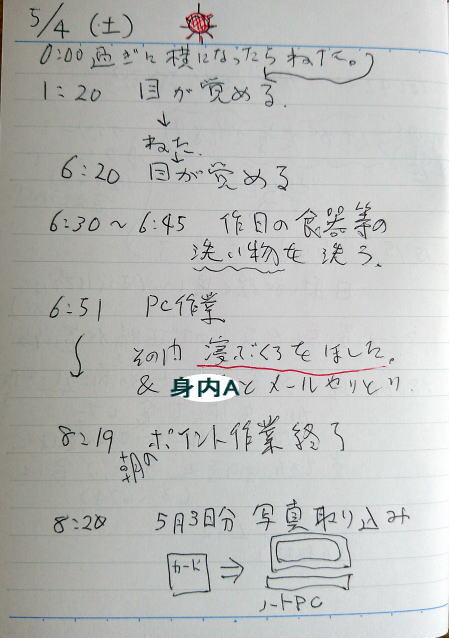 5/4 (土)
0:00 過ぎに横になったらねてた。
1:20 目が覚める.
↓
ねた.
6:20 目が覚める
6:30~6:45 作日の食器等の
洗い物を洗う.
6:51 PC作業
その内 寝ぶくろをほした。
& 身内Aとメールやりとり.
8:19 朝のポイント作業終了
8:20 5月3日分 写真取り込み
カード ⇒
ノートPC